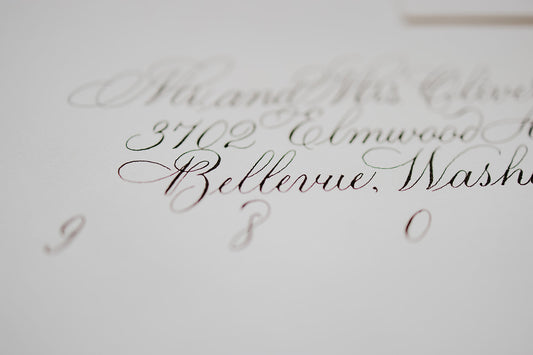 Mr. and Mrs. Clive
3702 Elmwood
Bellevue, Wash
9 8 0